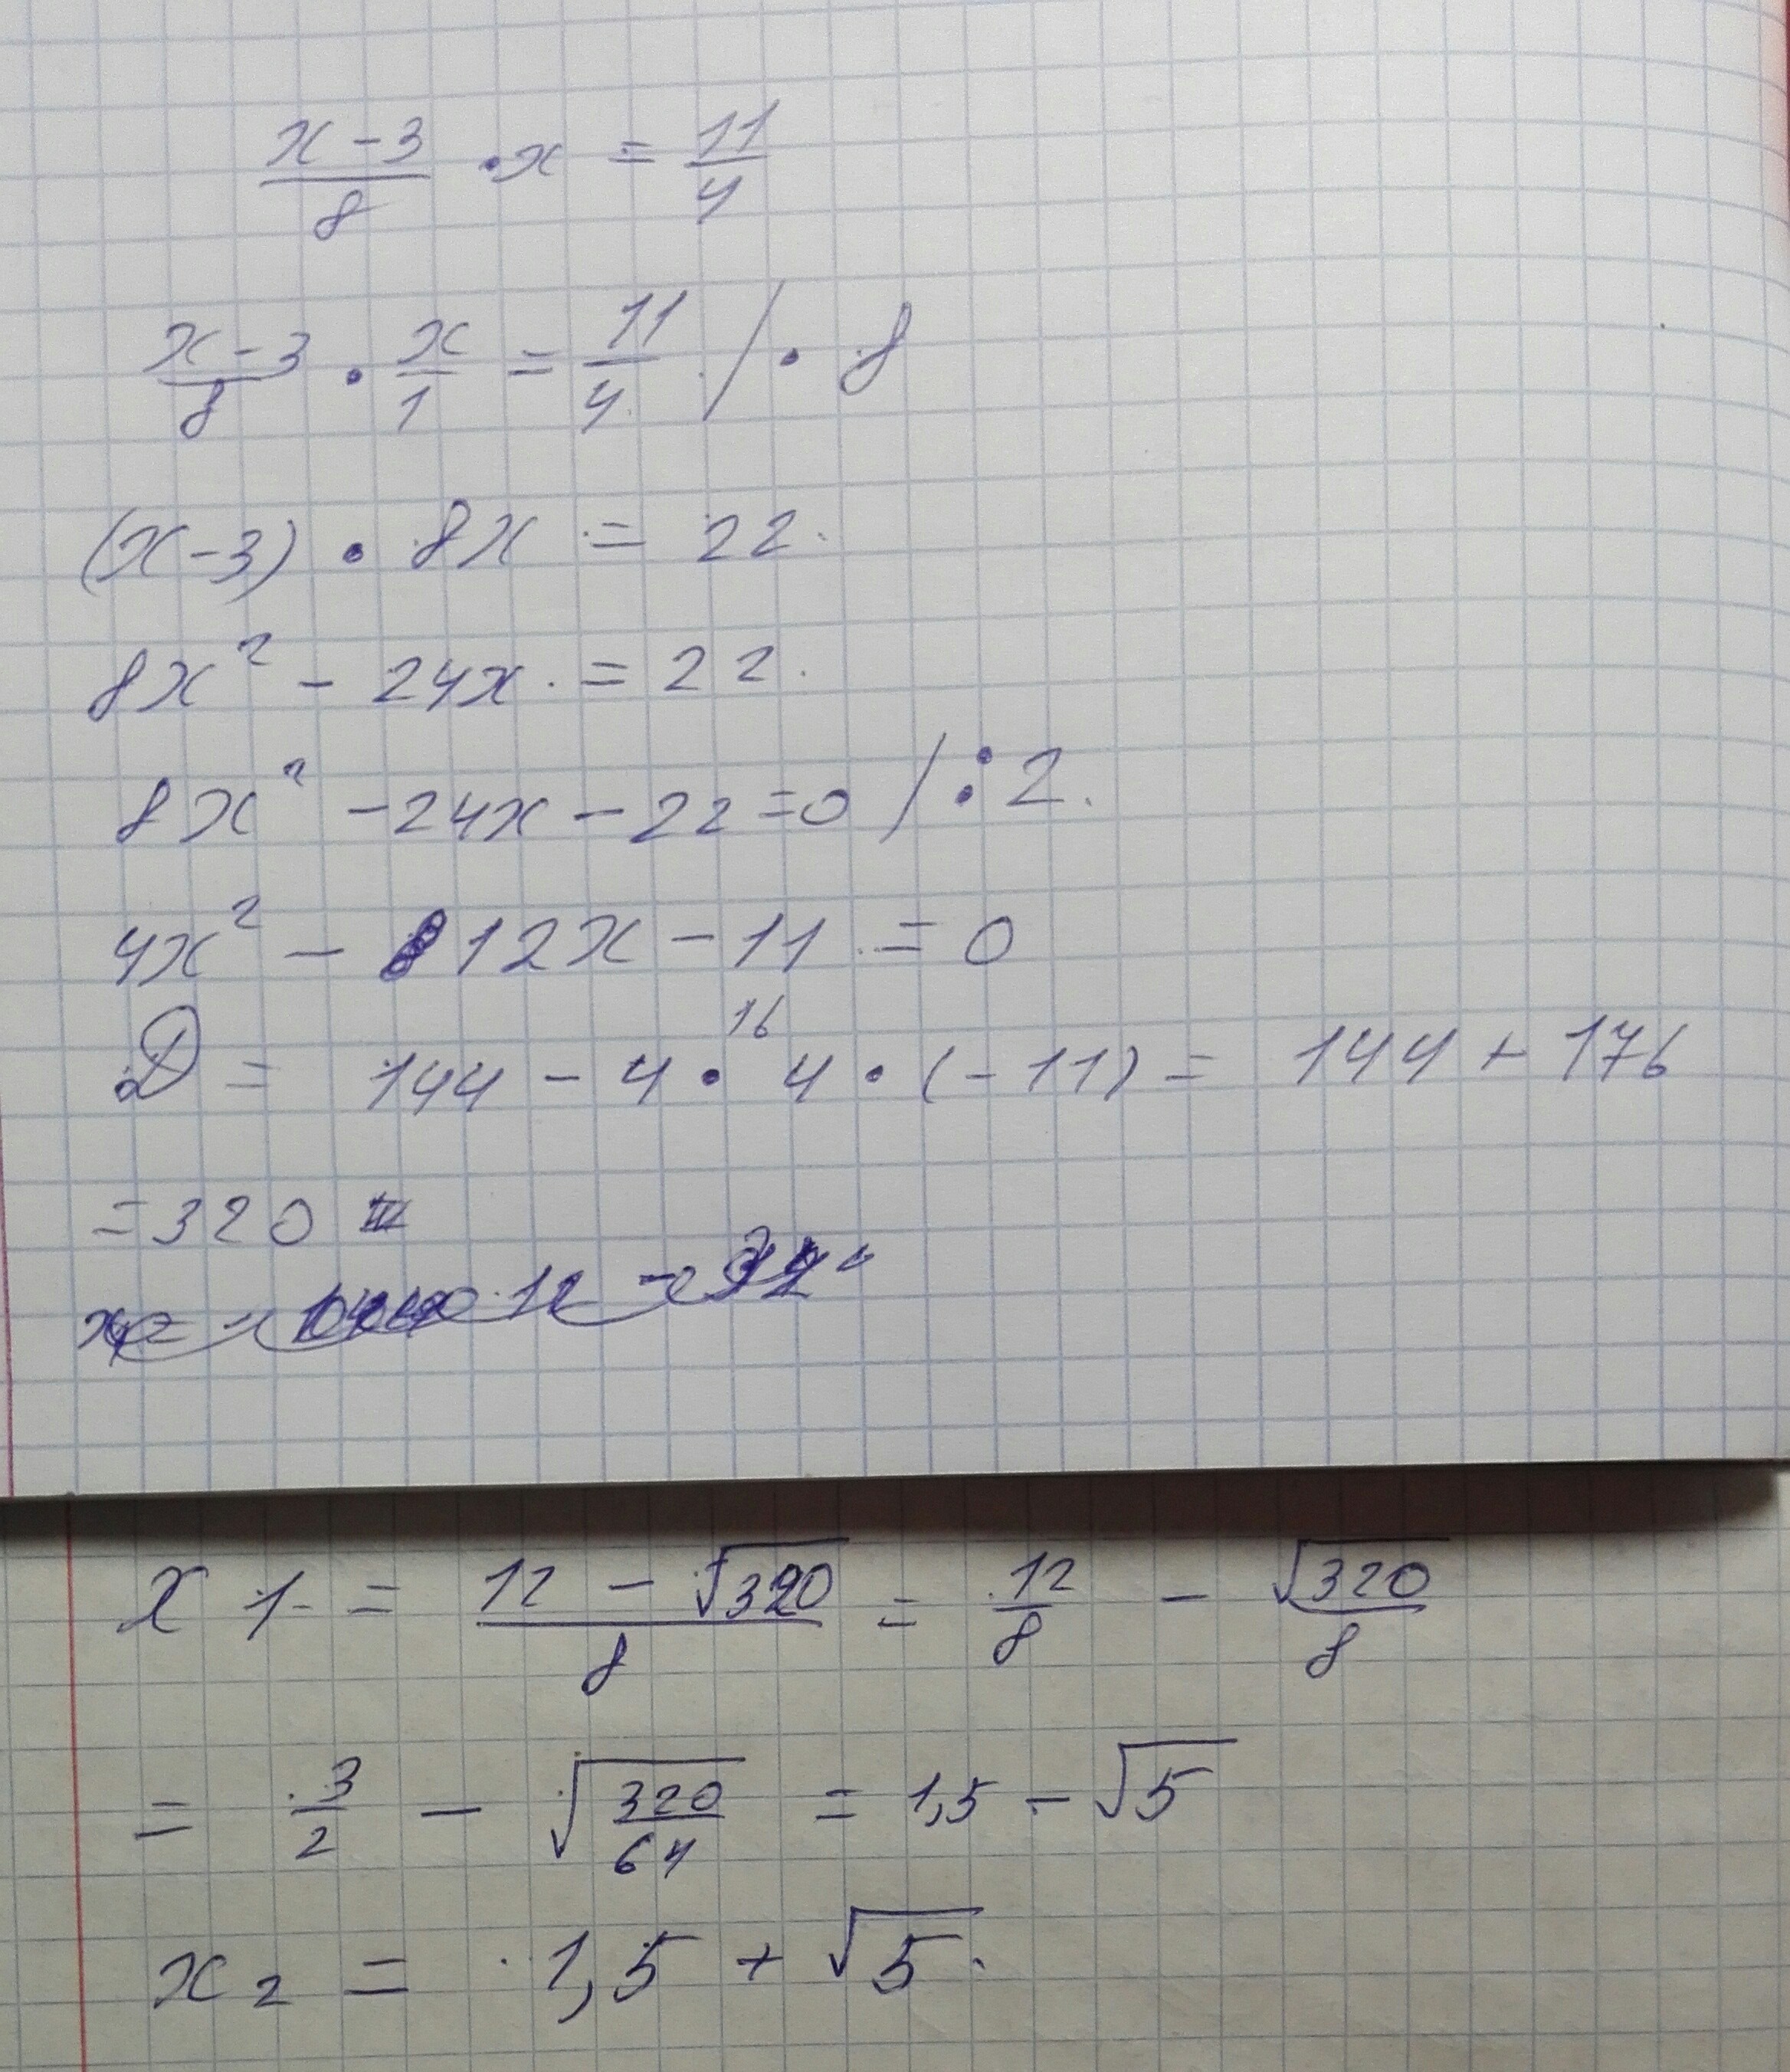 x-3/8 · x = 11/4
x-3/8 · x/1 = 11/4 / · 8
(x-3) · 8x = 22.
8x² - 24x = 22.
8x² - 24x - 22 = 0 / : 2.
4x² - 12x - 11 = 0
16
D = 144 - 4 · 4 · (-11) = 144 + 176
= 320
x1 = 12 - √320/8 = 12/8 - √320/8
= 3/2 - √320/64 = 1,5 - √5
x2 = 1,5 + √5.